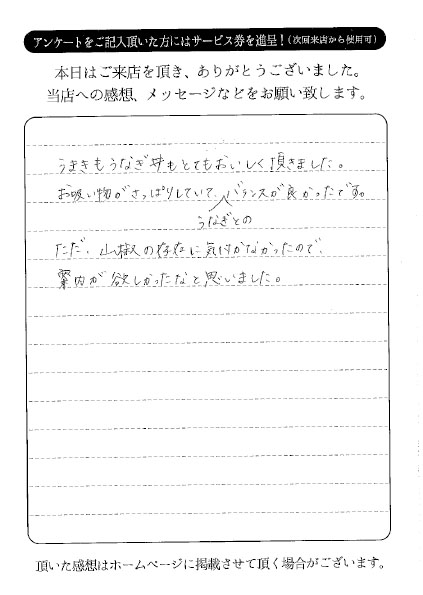 アンケートをご記入頂いた方にはサービス券を進呈!(次回来店から使用可)
本日はご来店を頂き、ありがとうございました。
当店への感想、メッセージなどをお願い致します。
うまきもうなぎ丼もとてもおいしく頂きました。
お吸い物がさっぱりしていて、バランスが良かったです。
うなぎとの
ただ、山椒の存在に気付かなかったので、
案内が欲しかったなと思いました。
頂いた感想はホームページに掲載させて頂く場合がございます。